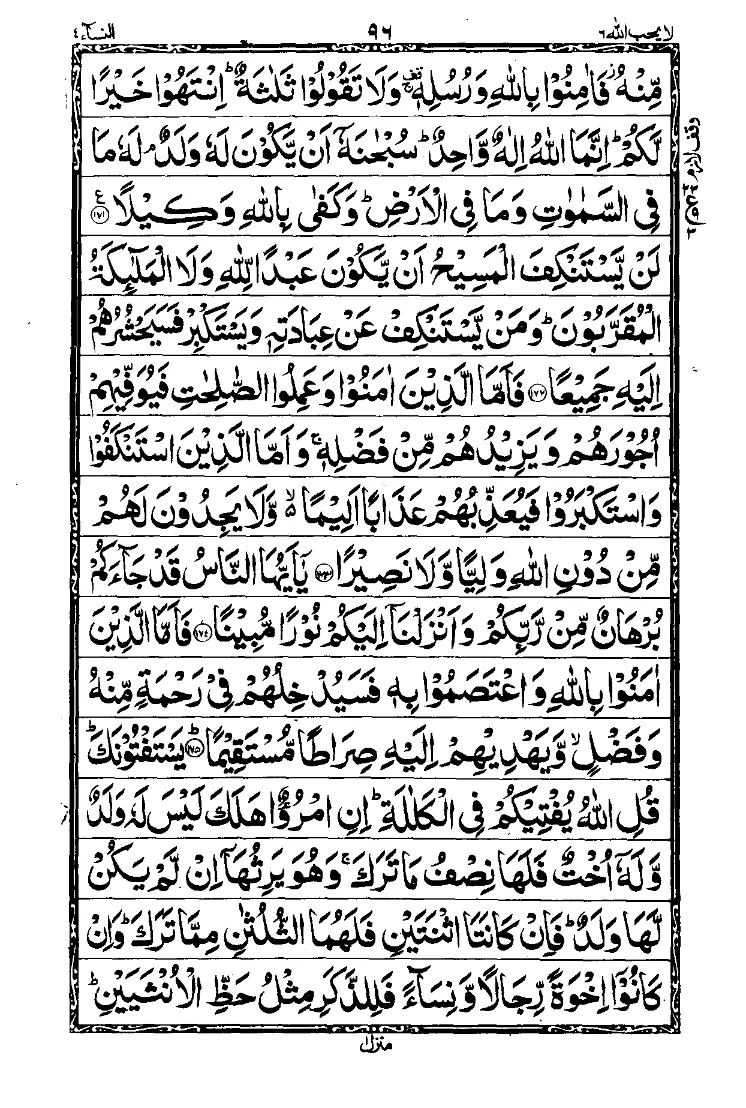 لا يحب الله ٦ ٩٦ النسآء ٤
مِّنْهُ ز فَاٰمِنُوْا بِاللّٰهِ وَرُسُلِهٖ ۚ وَلَا تَقُوْلُوْا ثَلٰثَةٌ ؕ اِنْتَهُوْا خَيْرًا
لَّكُمْ ؕ اِنَّمَا اللّٰهُ اِلٰهٌ وَّاحِدٌ ؕ سُبْحٰنَهٗۤ اَنْ يَّكُوْنَ لَهٗ وَلَدٌ ۘ لَهٗ مَا
فِى السَّمٰوٰتِ وَمَا فِى الْاَرْضِ ؕ وَكَفٰى بِاللّٰهِ وَكِيْلًا ع ﴿۱۷۱﴾
لَنْ يَّسْتَنْكِفَ الْمَسِيْحُ اَنْ يَّكُوْنَ عَبْدًا لِّلّٰهِ وَلَا الْمَلٰٓئِكَةُ
الْمُقَرَّبُوْنَ ؕ وَمَنْ يَّسْتَنْكِفْ عَنْ عِبَادَتِهٖ وَيَسْتَكْبِرْ فَسَيَحْشُرُهُمْ
اِلَيْهِ جَمِيْعًا ﴿۱۷۲﴾ فَاَمَّا الَّذِيْنَ اٰمَنُوْا وَعَمِلُوا الصّٰلِحٰتِ فَيُوَفِّيْهِمْ
اُجُوْرَهُمْ وَيَزِيْدُهُمْ مِّنْ فَضْلِهٖ ۚ وَاَمَّا الَّذِيْنَ اسْتَنْكَفُوْا
وَاسْتَكْبَرُوْا فَيُعَذِّبُهُمْ عَذَابًا اَلِيْمًا ۙ۬ وَّلَا يَجِدُوْنَ لَهُمْ
مِّنْ دُوْنِ اللّٰهِ وَلِيًّا وَّلَا نَصِيْرًا ﴿۱۷۳﴾ يٰۤاَيُّهَا النَّاسُ قَدْ جَآءَكُمْ
بُرْهَانٌ مِّنْ رَّبِّكُمْ وَاَنْزَلْنَاۤ اِلَيْكُمْ نُوْرًا مُّبِيْنًا ﴿۱۷٤﴾ فَاَمَّا الَّذِيْنَ
اٰمَنُوْا بِاللّٰهِ وَاعْتَصَمُوْا بِهٖ فَسَيُدْخِلُهُمْ فِىْ رَحْمَةٍ مِّنْهُ
وَفَضْلٍ ۙ وَّيَهْدِيْهِمْ اِلَيْهِ صِرَاطًا مُّسْتَقِيْمًا ؕ ﴿۱۷۵﴾ يَسْتَفْتُوْنَكَ ؕ
قُلِ اللّٰهُ يُفْتِيْكُمْ فِى الْكَلٰلَةِ ؕ اِنِ امْرُؤٌا هَلَكَ لَيْسَ لَهٗ وَلَدٌ
وَّلَهٗۤ اُخْتٌ فَلَهَا نِصْفُ مَا تَرَكَ ۚ وَهُوَ يَرِثُهَاۤ اِنْ لَّمْ يَكُنْ
لَّهَا وَلَدٌ ؕ فَاِنْ كَانَتَا اثْنَتَيْنِ فَلَهُمَا الثُّلُثٰنِ مِمَّا تَرَكَ ؕ وَاِنْ
كَانُوْۤا اِخْوَةً رِّجَالًا وَّنِسَآءً فَلِلذَّكَرِ مِثْلُ حَظِّ الْاُنْثَيَيْنِ ؕ
وقف لازم
منزل ١